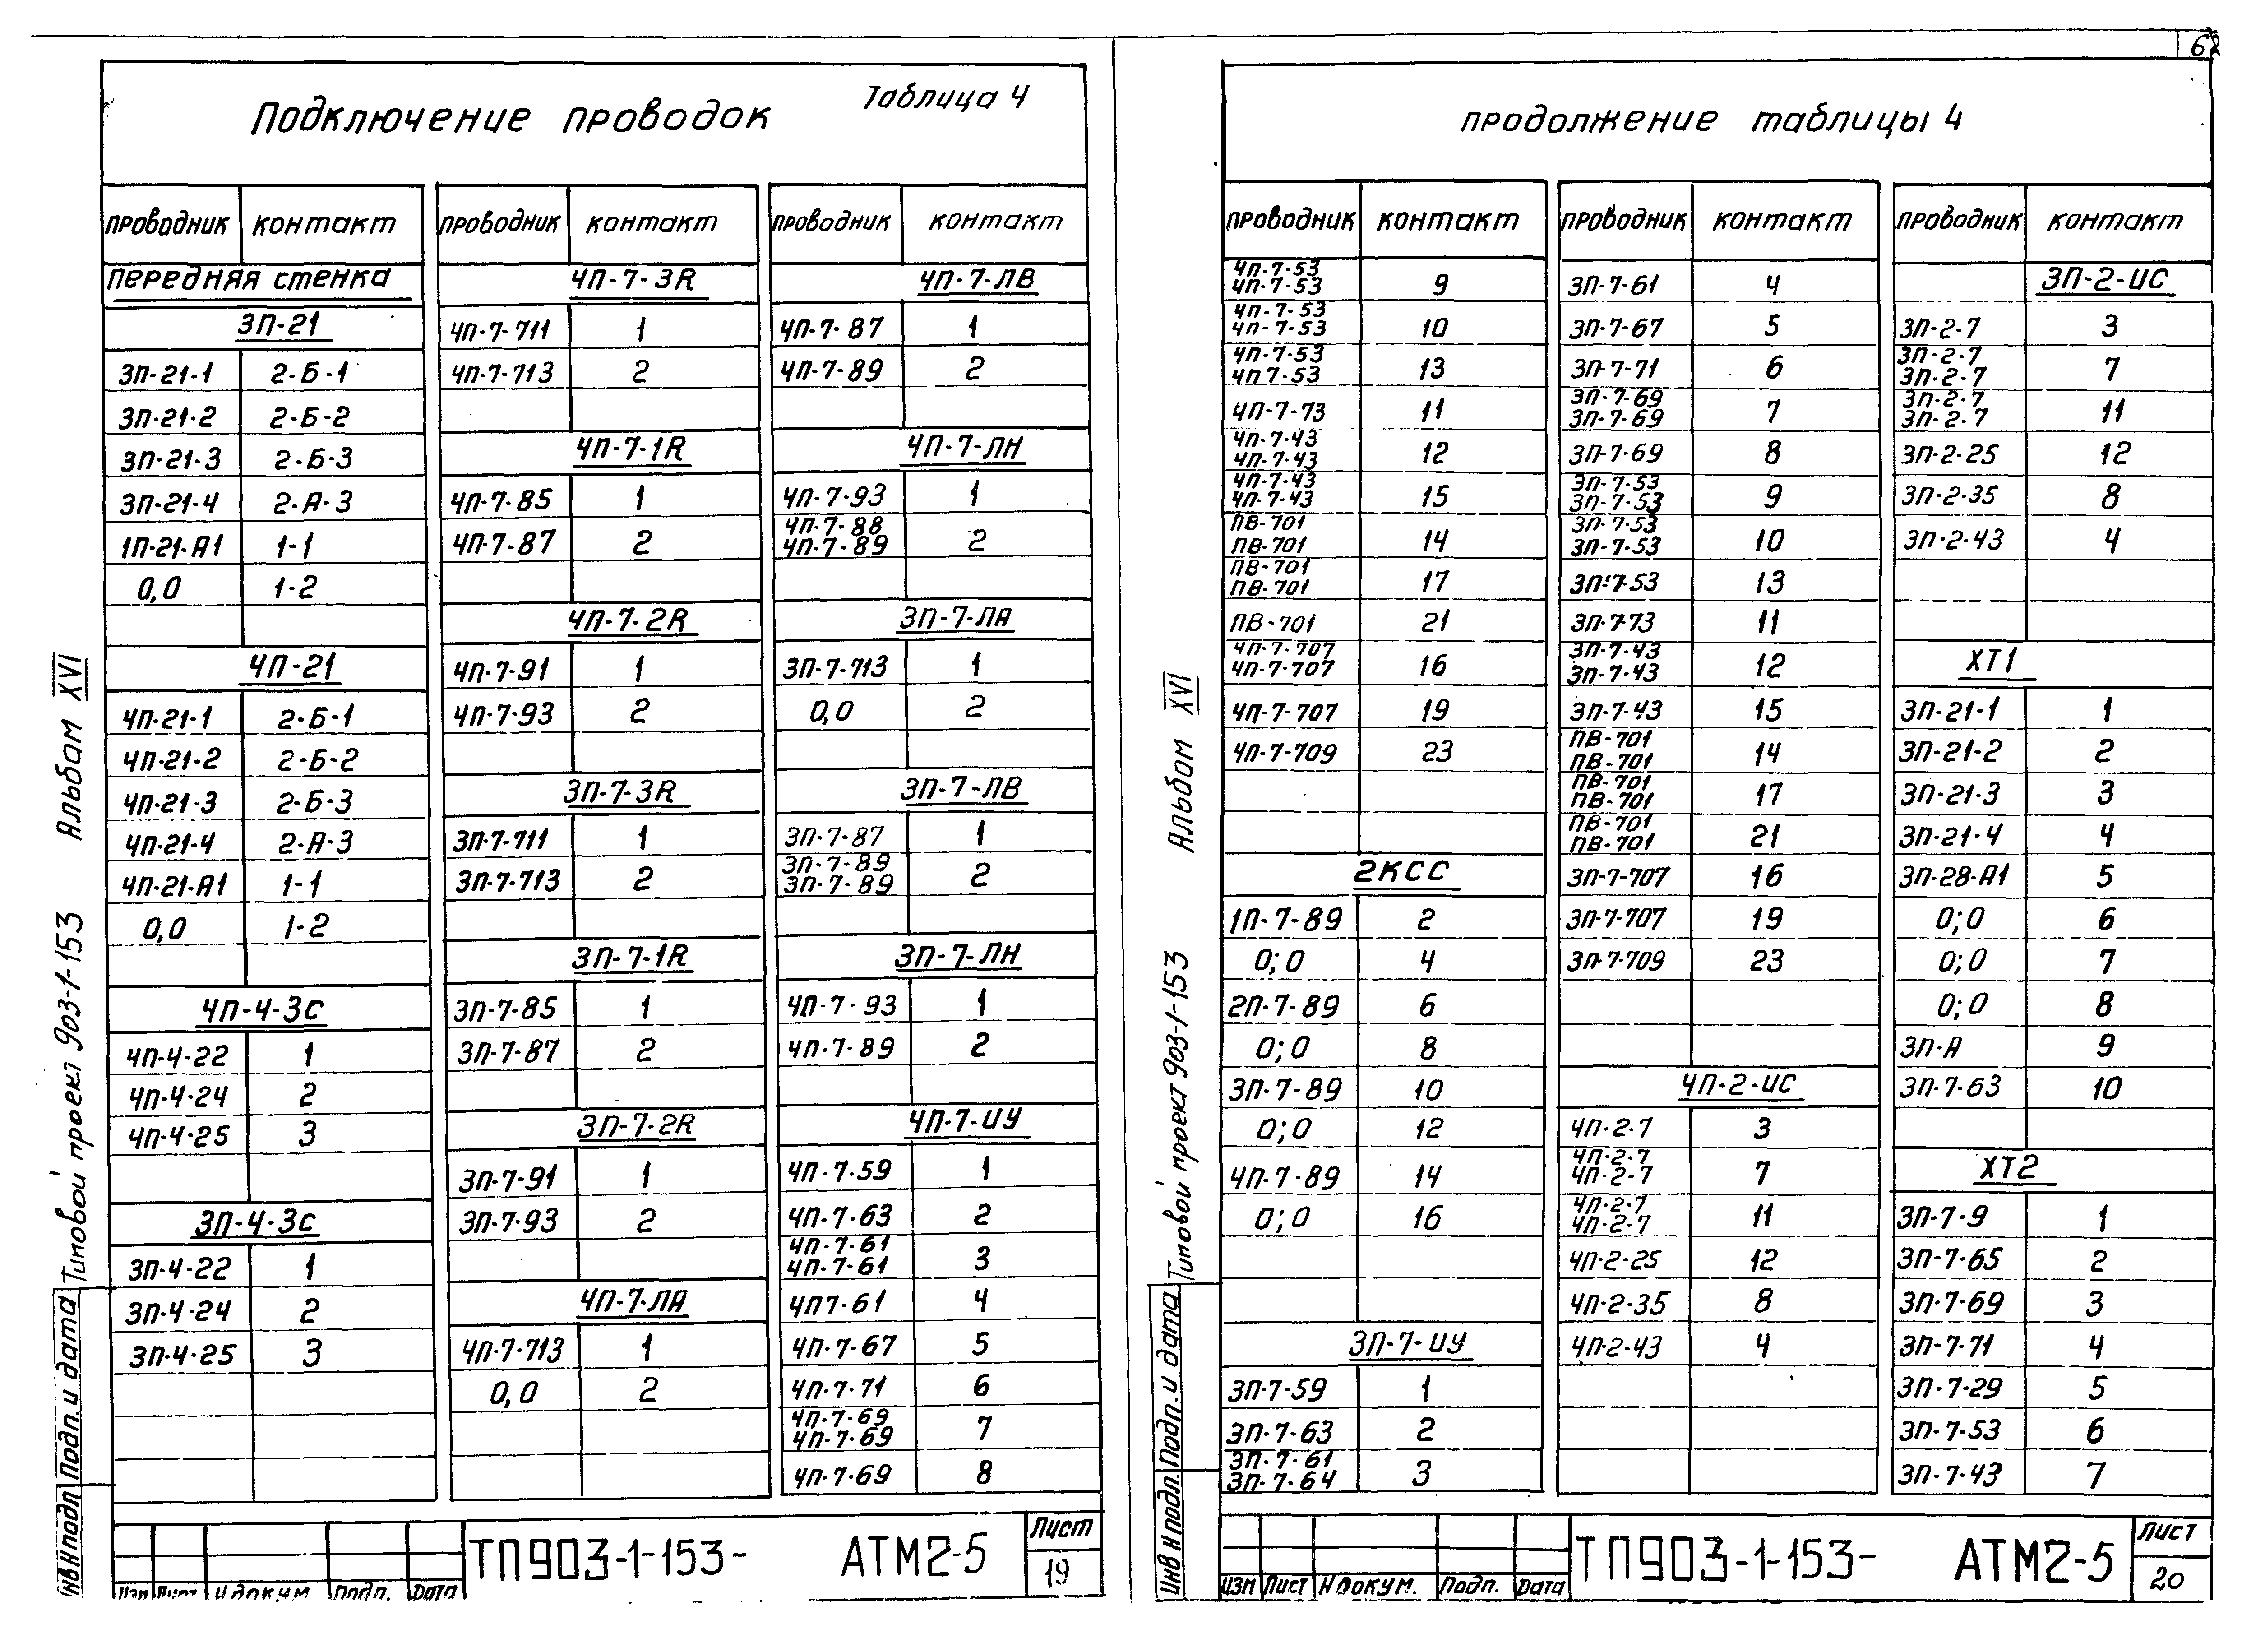 62
Таблица 4
Подключение проводок
проводник контакт
передняя стенка
3П-21
3П-21-1 2-Б-1
3П-21-2 2-Б-2
3П-21-3 2-Б-3
3П-21-4 2-А-3
1П-21-А1 1-1
0,0 1-2
4П-21
4П-21-1 2-Б-1
4П-21-2 2-Б-2
4П-21-3 2-Б-3
4П-21-4 2-А-3
4П-21-А1 1-1
0,0 1-2
4П-4-3с
4П-4-22 1
4П-4-24 2
4П-4-25 3
3П-4-3с
3П-4-22 1
3П-4-24 2
3П-4-25 3
проводник контакт
4П-7-3R
4П-7-711 1
4П-7-713 2
4П-7-1R
4П-7-85 1
4П-7-87 2
4П-7-2R
4П-7-91 1
4П-7-93 2
3П-7-3R
3П-7-711 1
3П-7-713 2
3П-7-1R
3П-7-85 1
3П-7-87 2
3П-7-2R
3П-7-91 1
3П-7-93 2
4П-7-ЛА
4П-7-713 1
0,0 2
проводник контакт
4П-7-ЛВ
4П-7-87 1
4П-7-89 2
4П-7-ЛН
4П-7-93 1
4П-7-88
4П-7-89 2
3П-7-ЛА
3П-7-713 1
0,0 2
3П-7-ЛВ
3П-7-87 1
3П-7-89
3П-7-89 2
3П-7-ЛН
4П-7-93 1
4П-7-89 2
4П-7-ИУ
4П-7-59 1
4П-7-63 2
4П-7-61
4П-7-61 3
4П7-61 4
4П-7-67 5
4П-7-71 6
4П-7-69
4П-7-69 7
4П-7-69 8
Альбом XVI
Типовой проект 903-1-153
Подп. и дата
Инв Н подп
Изм Лист Н докум Подп. Дата
ТП903-1-153- АТМ2-5
Лист
19
продолжение таблицы 4
проводник контакт
4П-7-53
4П-7-53 9
4П-7-53
4П-7-53 10
4П-7-53
4П 7-53 13
4П-7-73 11
4П-7-43
4П-7-43 12
4П-7-43
4П-7-43 15
ПВ-701
ПВ-701 14
ПВ-701
ПВ-701 17
ПВ-701 21
4П-7-707
4П-7-707 16
4П-7-707 19
4П-7-709 23
2КСС
1П-7-89 2
0;0 4
2П-7-89 6
0;0 8
3П-7-89 10
0;0 12
4П-7-89 14
0;0 16
3П-7-ИУ
3П-7-59 1
3П-7-63 2
3П-7-61
3П-7-64 3
проводник контакт
3П-7-61 4
3П-7-67 5
3П-7-71 6
3П-7-69
3П-7-69 7
3П-7-69 8
3П-7-53
3П-7-53 9
3П-7-53
3П-7-53 10
3П-7-53 13
3П-7-73 11
3П-7-43
3П-7-43 12
3П-7-43 15
ПВ-701
ПВ-701 14
ПВ-701
ПВ-701 17
ПВ-701
ПВ-701 21
3П-7-707 16
3П-7-707 19
3П-7-709 23
4П-2-ИС
4П-2-7 3
4П-2-7
4П-2-7 7
4П-2-7
4П-2-7 11
4П-2-25 12
4П-2-35 8
4П-2-43 4
проводник контакт
3П-2-ИС
3П-2-7 3
3П-2-7
3П-2-7 7
3П-2-7
3П-2-7 11
3П-2-25 12
3П-2-35 8
3П-2-43 4
ХТ1
3П-21-1 1
3П-21-2 2
3П-21-3 3
3П-21-4 4
3П-28-А1 5
0;0 6
0;0 7
0;0 8
3П-А 9
3П-7-63 10
ХТ2
3П-7-9 1
3П-7-65 2
3П-7-69 3
3П-7-71 4
3П-7-29 5
3П-7-53 6
3П-7-43 7
Альбом XVI
Типовой проект 903-1-153
Подп. и дата
Инв Н подл.
Изм Лист Н докум. Подп. Дата
ТП903-1-153- АТМ2-5
Лист
20